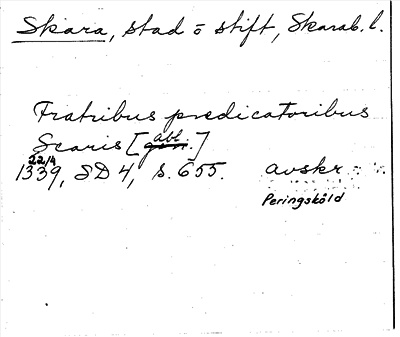 Skara, stad o stift, Skarab. l.
Fratribus predicatoribus
Scaris [gen. abl.]
22/4
1339, SD 4, s. 655. avskr.
Peringsköld